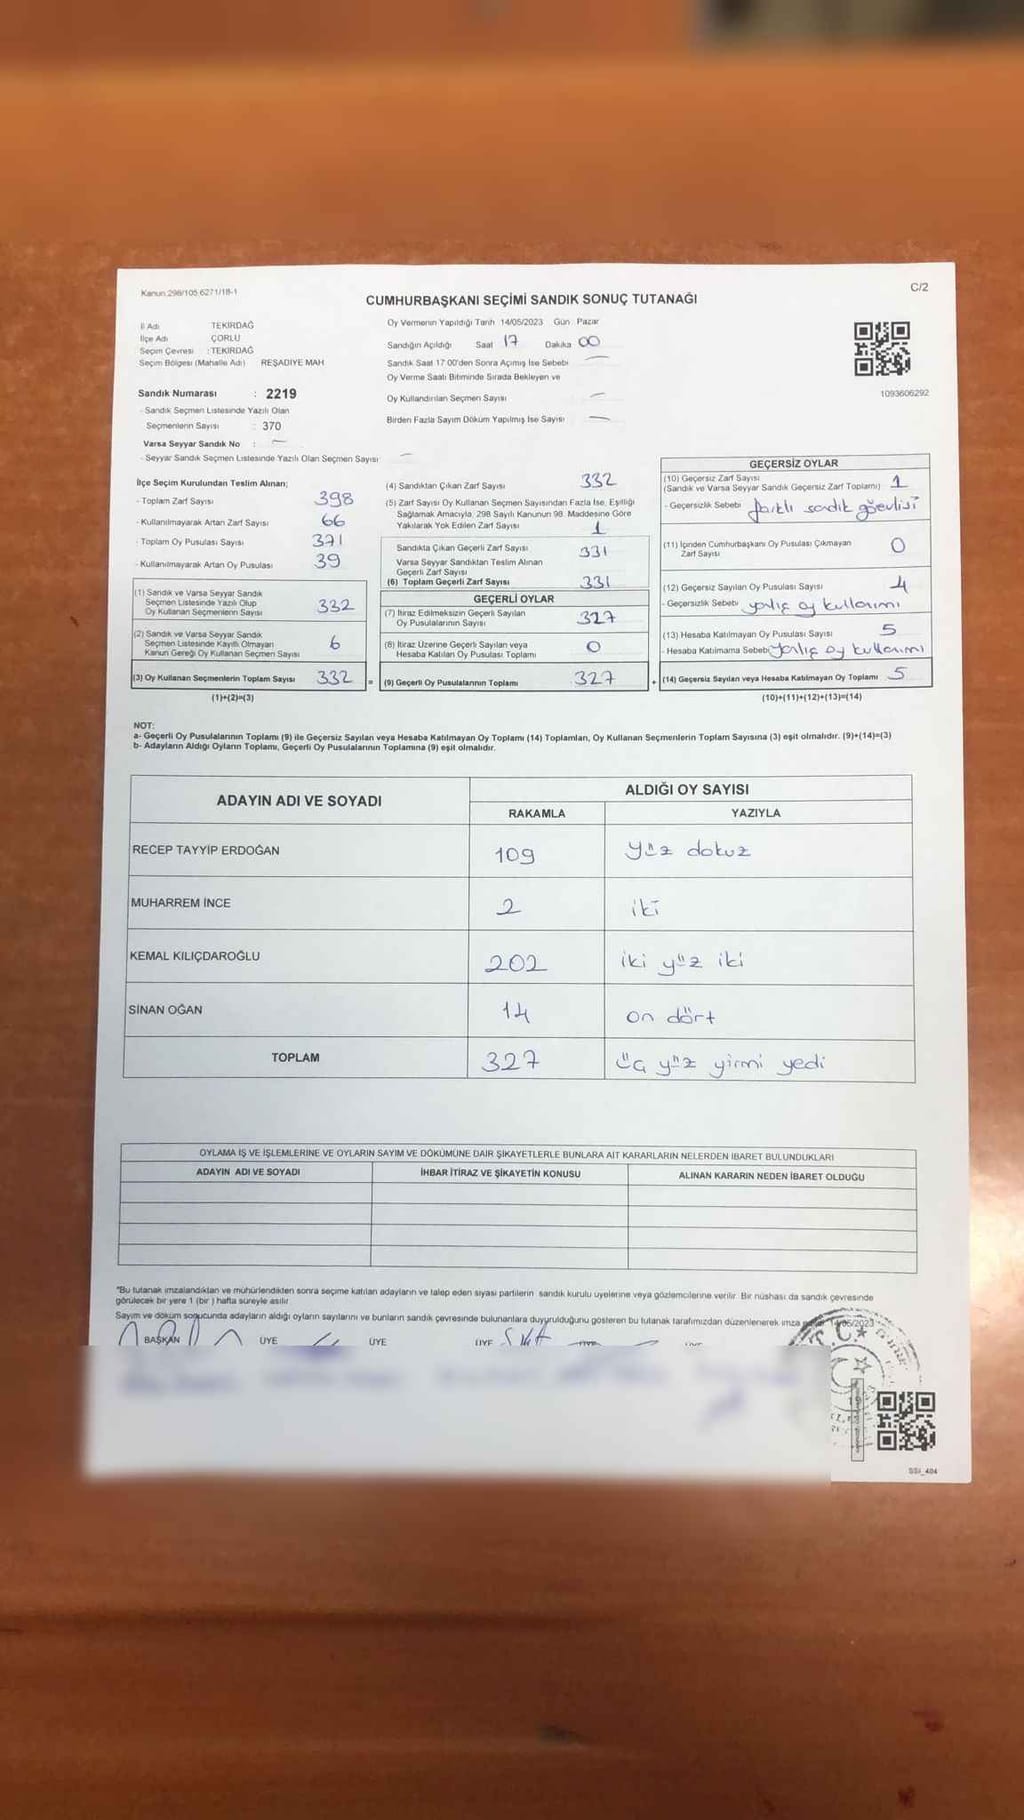 Kanun 298/105.6271/18-1
C/2
CUMHURBAŞKANI SEÇİMİ SANDIK SONUÇ TUTANAĞI
İl Adı TEKİRDAĞ
İlçe Adı ÇORLU
Seçim Çevresi : TEKİRDAĞ
Seçim Bölgesi (Mahalle Adı) REŞADİYE MAH
Sandık Numarası : 2219
- Sandık Seçmen Listesinde Yazılı Olan
Seçmenlerin Sayısı : 370
Varsa Seyyar Sandık No : —
- Seyyar Sandık Seçmen Listesinde Yazılı Olan Seçmen Sayısı —
Oy Vermenin Yapıldığı Tarih 14/05/2023 Gün : Pazar
Sandığın Açıldığı Saat 17 Dakika 00
Sandık Saat 17:00'den Sonra Açımış İse Sebebi —
Oy Verme Saati Bitiminde Sırada Bekleyen ve
Oy Kullandırılan Seçmen Sayısı —
Birden Fazla Sayım Döküm Yapılmış İse Sayısı —
1093606292
İlçe Seçim Kurulundan Teslim Alınan;
- Toplam Zarf Sayısı 398
- Kullanılmayarak Artan Zarf Sayısı 66
- Toplam Oy Pusulası Sayısı 371
- Kullanılmayarak Artan Oy Pusulası 39
(1) Sandık ve Varsa Seyyar Sandık
Seçmen Listesinde Yazılı Olup
Oy Kullanan Seçmenlerin Sayısı 332
(2) Sandık ve Varsa Seyyar Sandık
Seçmen Listesinde Kayıtlı Olmayan
Kanun Gereği Oy Kullanan Seçmen Sayısı 6
(3) Oy Kullanan Seçmenlerin Toplam Sayısı 332 =
(1)+(2)=(3)
(4) Sandıktan Çıkan Zarf Sayısı 332
(5) Zarf Sayısı Oy Kullanan Seçmen Sayısından Fazla İse, Eşitliği
Sağlamak Amacıyla, 298 Sayılı Kanunun 98. Maddesine Göre
Yakılarak Yok Edilen Zarf Sayısı 1
Sandıkta Çıkan Geçerli Zarf Sayısı 331
Varsa Seyyar Sandıktan Teslim Alınan
Geçerli Zarf Sayısı
(6) Toplam Geçerli Zarf Sayısı 331
GEÇERLİ OYLAR
(7) İtiraz Edilmeksizin Geçerli Sayılan
Oy Pusulalarının Sayısı 327
(8) İtiraz Üzerine Geçerli Sayılan veya
Hesaba Katılan Oy Pusulası Toplamı 0
(9) Geçerli Oy Pusulalarının Toplamı 327 +
GEÇERSİZ OYLAR
(10) Geçersiz Zarf Sayısı
(Sandık ve Varsa Seyyar Sandık Geçersiz Zarf Toplamı) 1
- Geçersizlik Sebebi farklı sandık görevlisi
(11) İçinden Cumhurbaşkanı Oy Pusulası Çıkmayan
Zarf Sayısı 0
(12) Geçersiz Sayılan Oy Pusulası Sayısı 4
- Geçersizlik Sebebi yanlış oy kullanımı
(13) Hesaba Katılmayan Oy Pusulası Sayısı 5
- Hesaba Katılmama Sebebi Yanlış oy kullanımı
(14) Geçersiz Sayılan veya Hesaba Katılmayan Oy Toplamı 5
(10)+(11)+(12)+(13)=(14)
NOT:
a- Geçerli Oy Pusulalarının Toplamı (9) ile Geçersiz Sayılan veya Hesaba Katılmayan Oy Toplamı (14) Toplamları, Oy Kullanan Seçmenlerin Toplam Sayısına (3) eşit olmalıdır. (9)+(14)=(3)
b- Adayların Aldığı Oyların Toplamı, Geçerli Oy Pusulalarının Toplamına (9) eşit olmalıdır.
ADAYIN ADI VE SOYADI ALDIĞI OY SAYISI
RAKAMLA YAZIYLA
RECEP TAYYİP ERDOĞAN 109 yüz dokuz
MUHARREM İNCE 2 iki
KEMAL KILIÇDAROĞLU 202 iki yüz iki
SİNAN OĞAN 14 on dört
TOPLAM 327 üç yüz yirmi yedi
OYLAMA İŞ VE İŞLEMLERİNE VE OYLARIN SAYIM VE DÖKÜMÜNE DAİR ŞİKAYETLERLE BUNLARA AİT KARARLARIN NELERDEN İBARET BULUNDUKLARI
ADAYIN ADI VE SOYADI İHBAR İTİRAZ VE ŞİKAYETİN KONUSU ALINAN KARARIN NEDEN İBARET OLDUĞU
*Bu tutanak imzalandıktan ve mühürlendikten sonra seçime katılan adayların ve talep eden siyasi partilerin sandık kurulu üyelerine veya gözlemcilerine verilir. Bir nüshası da sandık çevresinde
görülecek bir yere 1 (bir ) hafta süreyle asılır
Sayım ve döküm sonucunda adayların aldığı oyların sayılarını ve bunların sandık çevresinde bulunanlara duyurulduğunu gösteren bu tutanak tarafımızdan düzenlenerek imza 14/05/2023
BAŞKAN ÜYE ÜYE ÜYE
T.C.
SSI_404